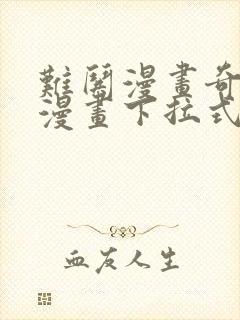 難鬧漫畫奇
漫畫下拉式
血友人生